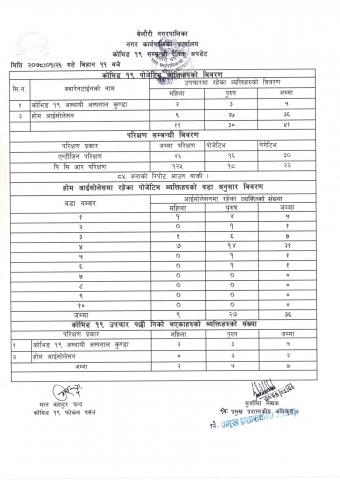 बेलौरी नगरपालिका
नगर कार्यपालिकाको कार्यालय
कोभिड १९ सम्बन्धी दैनिक अपडेट
मिति २०७८।०१।२६ गते बिहान ११ बजे
कोभिड १९ पोजेटिभ व्यक्तिहरुको बिवरण
सि.न. क्वारेनटाईनको नाम उपचारमा रहेका व्यक्तिहरुको बिवरण
महिला पुरुष जम्मा
१ कोभिड १९ अस्थायी अस्पताल कुण्डा २ ३ ५
२ होम आईसोलेसन ९ २७ ३६
११ ३० ४१
परिक्षण सम्बन्धी बिवरण
परिक्षण प्रकार जम्मा परिक्षण पोजेटिभ नेगेटिभ
एन्टीजिन परिक्षण ४६ १६ ३०
पि सी आर परिक्षण १२५ १८ २२
८५ जनाको रिपोट आउन बाकी ।
होम आईसोलेसमा रहेका पोजेटिभ व्यक्तिहरुको वडा अनुसार बिवरण
वडा नम्बर आईसोलेसनमा रहेका व्यक्तिको संख्या
महिला पुरुष जम्मा
१ १ ४ ५
२ ० १ १
३ १ ६ ७
४ ७ १४ २१
५ ० १ १
६ ० १ १
७ ० ० ०
८ ० ० ०
९ ० ० ०
१० ० ० ०
जम्मा ९ २७ ३६
कोभिड १९ उपचार पछी निको भएकाहरुको व्यक्तिहरुको संख्या
परिक्षण प्रकार महिला पुरुष जम्मा
१ कोभिड १९ अस्थायी अस्पताल कुण्डा २ ३ ५
२ होम आईसोलेसन ० २ २
जम्मा २ ५ ७
मान बहादुर चन्द
कोभिड १९ फोकल पर्सन
सुशीला लेखक
नि. प्रमुख प्रशासकीय अधिकृत